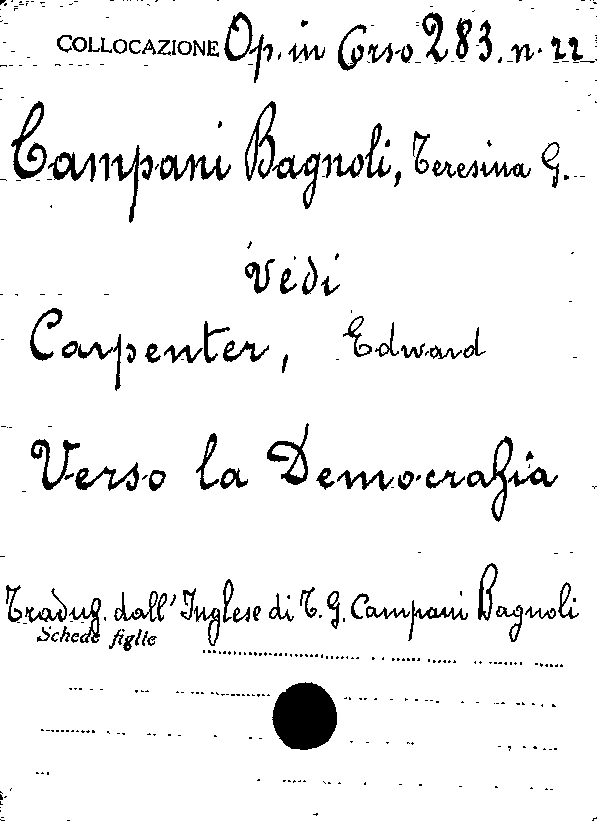 COLLOCAZIONE Op. in Corso 283. n. 22
Campani Bagnoli, Teresina G.
vedi
Carpenter, Edward
Verso la Democrazia
Traduz. dall'Inglese di T. G. Campani Bagnoli
Schede figlie